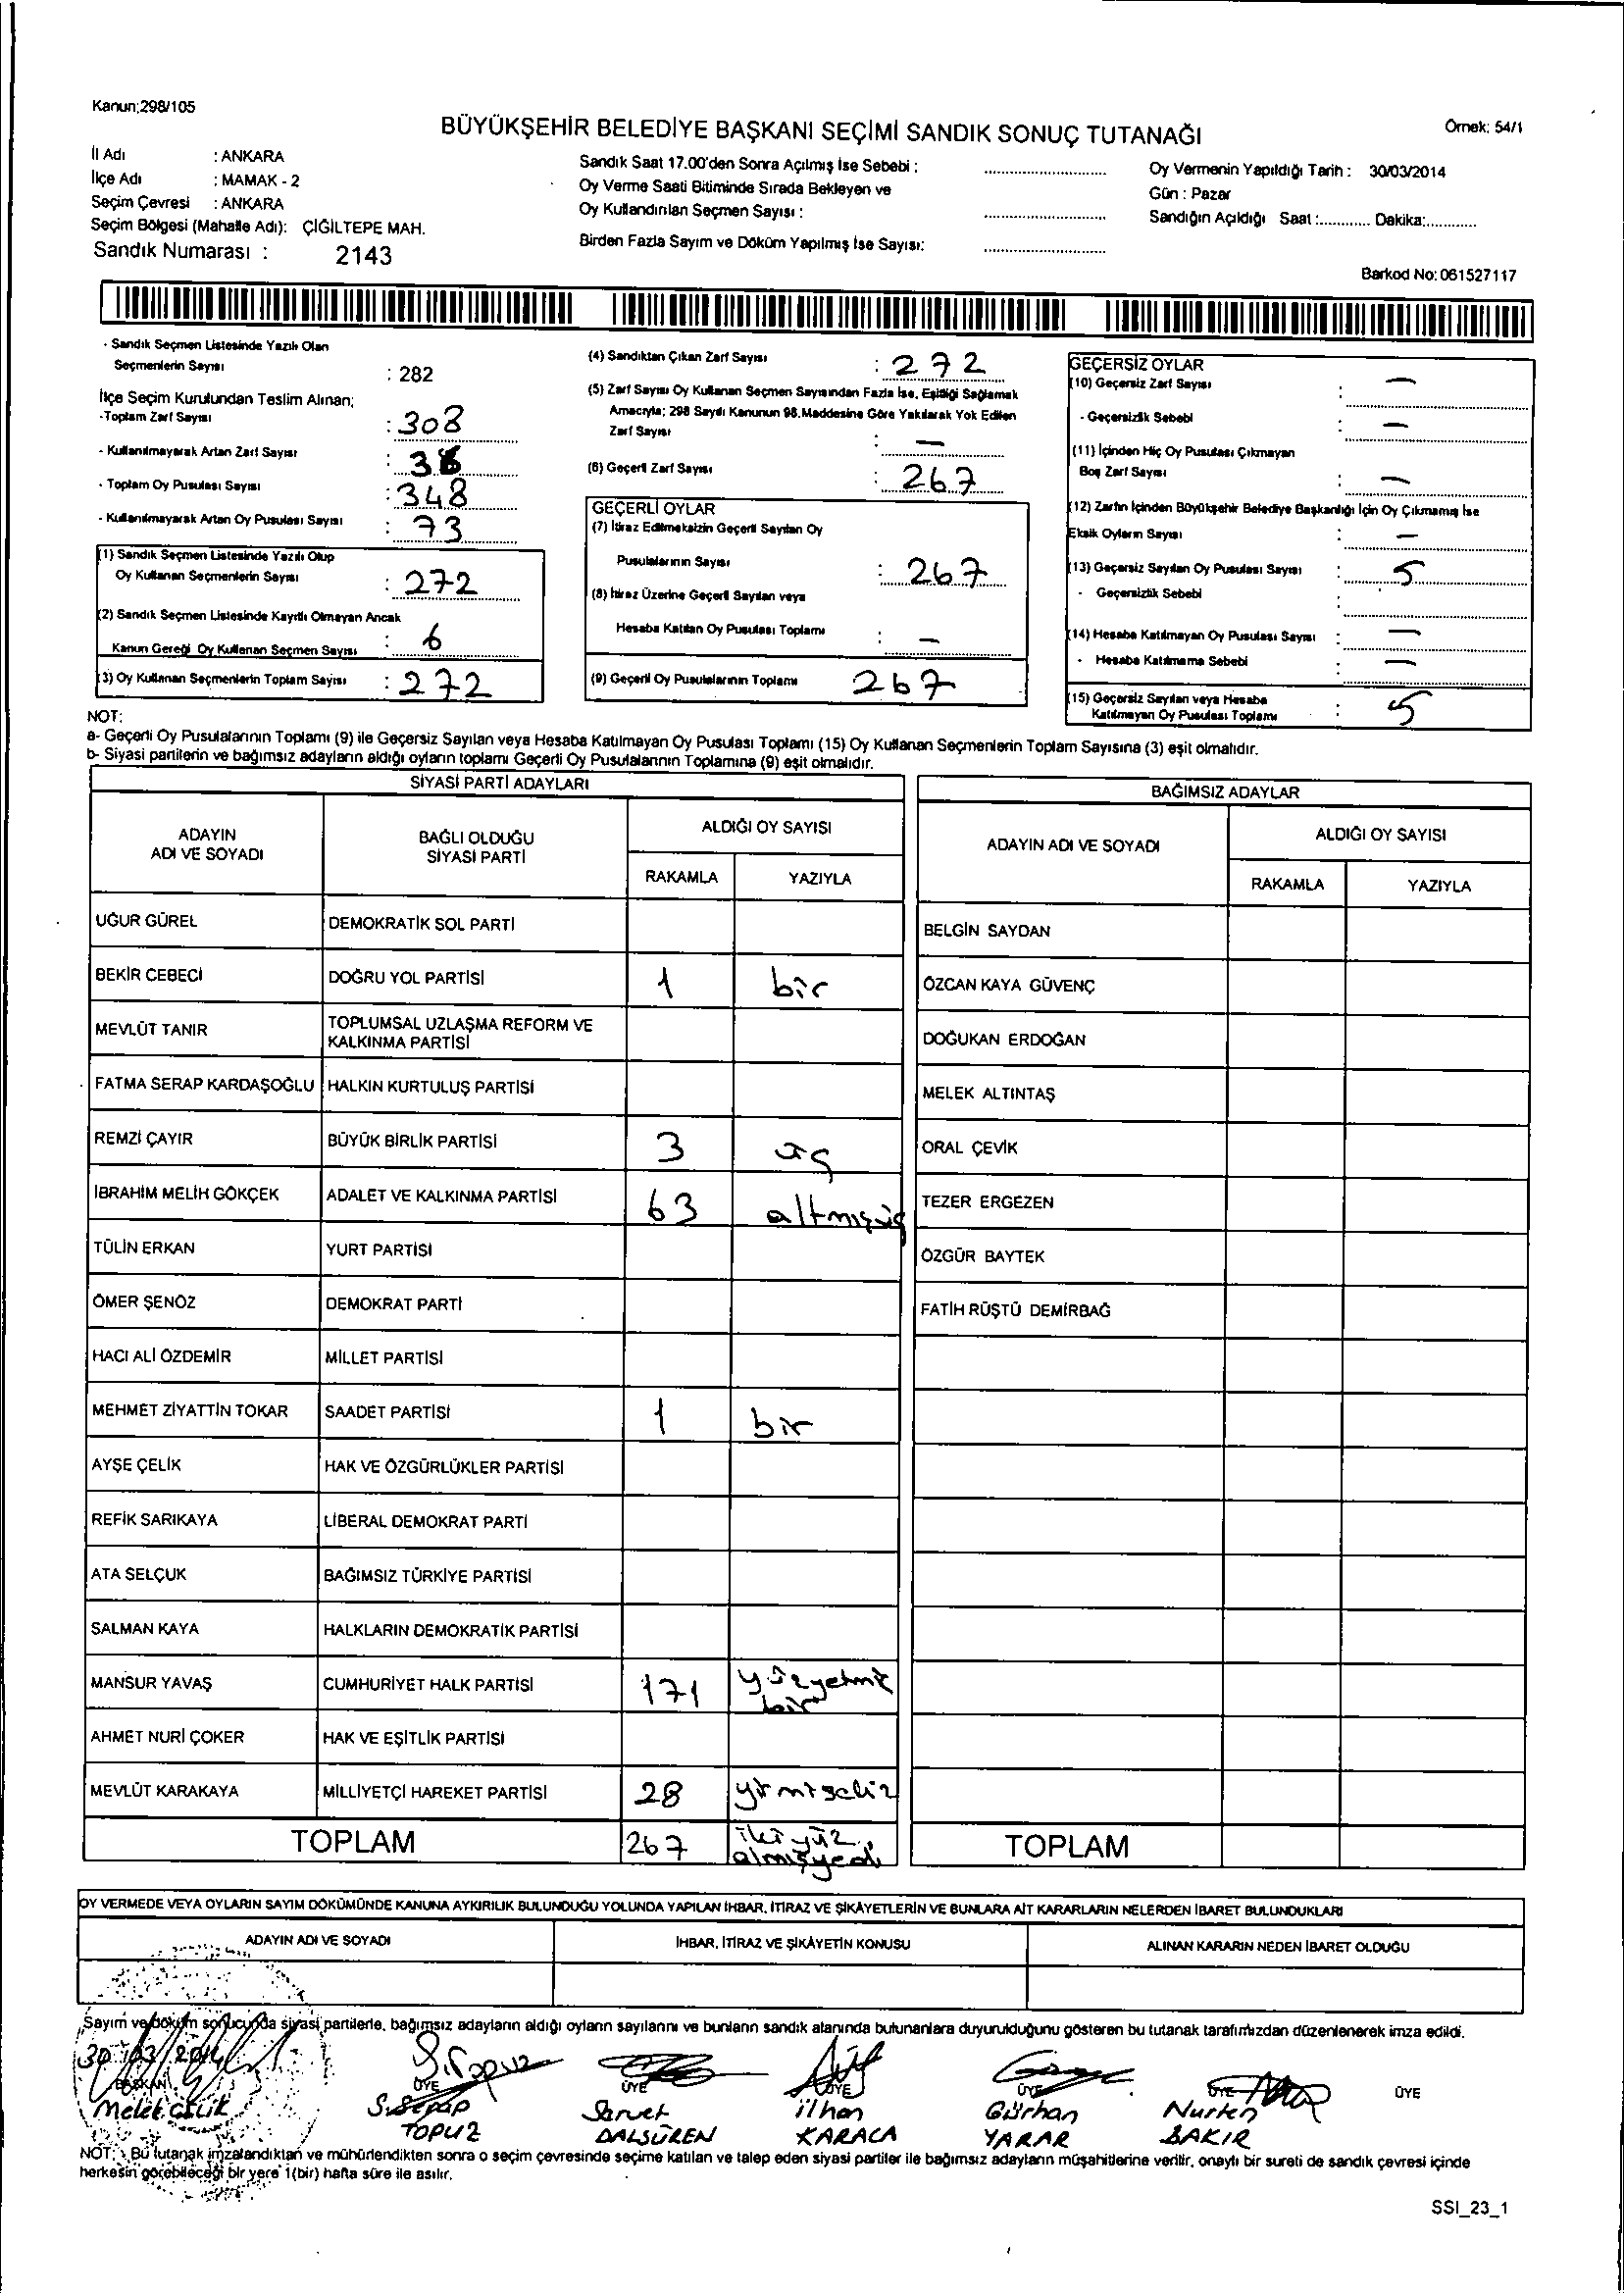 Kanun;298/105
BÜYÜKŞEHİR BELEDİYE BAŞKANI SEÇİMİ SANDIK SONUÇ TUTANAĞI
Örnek: 54/1
İl Adı : ANKARA
İlçe Adı : MAMAK - 2
Seçim Çevresi : ANKARA
Seçim Bölgesi (Mahalle Adı): ÇİĞİLTEPE MAH.
Sandık Numarası : 2143
Sandık Saat 17.00'den Sonra Açılmış İse Sebebi : ..............................
Oy Verme Saati Bitiminde Sırada Bekleyen ve
Oy Kullandırılan Seçmen Sayısı : ..............................
Birden Fazla Sayım ve Döküm Yapılmış İse Sayısı: ..............................
Oy Vermenin Yapıldığı Tarih : 30/03/2014
Gün : Pazar
Sandığın Açıldığı Saat :............ Dakika:............
Barkod No: 061527117
- Sandık Seçmen Listesinde Yazılı Olan
Seçmenlerin Sayısı : 282
İlçe Seçim Kurulundan Teslim Alınan;
-Toplam Zarf Sayısı : 308
- Kullanılmayarak Artan Zarf Sayısı :
- Toplam Oy Pusulası Sayısı : 348
- Kullanılmayarak Artan Oy Pusulası Sayısı : 73
(1) Sandık Seçmen Listesinde Yazılı Olup
Oy Kullanan Seçmenlerin Sayısı : 272
(2) Sandık Seçmen Listesinde Kayıtlı Olmayan Ancak
Kanun Gereği Oy Kullanan Seçmen Sayısı : 6
(3) Oy Kullanan Seçmenlerin Toplam Sayısı : 272
(4) Sandıktan Çıkan Zarf Sayısı : 272
(5) Zarf Sayısı Oy Kullanan Seçmen Sayısından Fazla İse, Eşitliği Sağlamak
Amacıyla; 298 Sayılı Kanunun 98.Maddesine Göre Yakılarak Yok Edilen
Zarf Sayısı : —
(6) Geçerli Zarf Sayısı : 267
GEÇERLİ OYLAR
(7) İtiraz Edilmeksizin Geçerli Sayılan Oy
Pusulalarının Sayısı : 267
(8) İtiraz Üzerine Geçerli Sayılan veya
Hesaba Katılan Oy Pusulası Toplamı : —
(9) Geçerli Oy Pusulalarının Toplamı 267
GEÇERSİZ OYLAR
(10) Geçersiz Zarf Sayısı : —
- Geçersizlik Sebebi : —
(11) İçinden Hiç Oy Pusulası Çıkmayan
Boş Zarf Sayısı : —
(12) Zarfın İçinden Büyükşehir Belediye Başkanlığı İçin Oy Çıkmamış İse
Eksik Oyların Sayısı : —
(13) Geçersiz Sayılan Oy Pusulası Sayısı : 5
- Geçersizlik Sebebi :
(14) Hesaba Katılmayan Oy Pusulası Sayısı : —
- Hesaba Katılmama Sebebi : —
(15) Geçersiz Sayılan veya Hesaba
Katılmayan Oy Pusulası Toplamı : 5
NOT:
a- Geçerli Oy Pusulalarının Toplamı (9) ile Geçersiz Sayılan veya Hesaba Katılmayan Oy Pusulası Toplamı (15) Oy Kullanan Seçmenlerin Toplam Sayısına (3) eşit olmalıdır.
b- Siyasi partilerin ve bağımsız adayların aldığı oyların toplamı Geçerli Oy Pusulalarının Toplamına (9) eşit olmalıdır.
SİYASİ PARTİ ADAYLARI
ADAYIN ADI VE SOYADI BAĞLI OLDUĞU SİYASİ PARTİ ALDIĞI OY SAYISI
RAKAMLA YAZIYLA
UĞUR GÜREL DEMOKRATİK SOL PARTİ
BEKİR CEBECİ DOĞRU YOL PARTİSİ 1 bir
MEVLÜT TANIR TOPLUMSAL UZLAŞMA REFORM VE
KALKINMA PARTİSİ
FATMA SERAP KARDAŞOĞLU HALKIN KURTULUŞ PARTİSİ
REMZİ ÇAYIR BÜYÜK BİRLİK PARTİSİ 3 üç
İBRAHİM MELİH GÖKÇEK ADALET VE KALKINMA PARTİSİ 63 altmışüç
TÜLİN ERKAN YURT PARTİSİ
ÖMER ŞENÖZ DEMOKRAT PARTİ
HACI ALİ ÖZDEMİR MİLLET PARTİSİ
MEHMET ZİYATTİN TOKAR SAADET PARTİSİ 1 bir
AYŞE ÇELİK HAK VE ÖZGÜRLÜKLER PARTİSİ
REFİK SARIKAYA LİBERAL DEMOKRAT PARTİ
ATA SELÇUK BAĞIMSIZ TÜRKİYE PARTİSİ
SALMAN KAYA HALKLARIN DEMOKRATİK PARTİSİ
MANSUR YAVAŞ CUMHURİYET HALK PARTİSİ 171 yüzyetmiş
bir
AHMET NURİ ÇOKER HAK VE EŞİTLİK PARTİSİ
MEVLÜT KARAKAYA MİLLİYETÇİ HAREKET PARTİSİ 28
TOPLAM 267 ikiyüz
almışyedi
BAĞIMSIZ ADAYLAR
ADAYIN ADI VE SOYADI ALDIĞI OY SAYISI
RAKAMLA YAZIYLA
BELGİN SAYDAN
ÖZCAN KAYA GÜVENÇ
DOĞUKAN ERDOĞAN
MELEK ALTINTAŞ
ORAL ÇEVİK
TEZER ERGEZEN
ÖZGÜR BAYTEK
FATİH RÜŞTÜ DEMİRBAĞ
TOPLAM
OY VERMEDE VEYA OYLARIN SAYIM DÖKÜMÜNDE KANUNA AYKIRILIK BULUNDUĞU YOLUNDA YAPILAN İHBAR, İTİRAZ VE ŞİKÂYETLERİN VE BUNLARA AİT KARARLARIN NELERDEN İBARET BULUNDUKLARI
ADAYIN ADI VE SOYADI İHBAR, İTİRAZ VE ŞİKÂYETİN KONUSU ALINAN KARARIN NEDEN İBARET OLDUĞU
Sayım ve döküm sonucunda siyasi partilerle, bağımsız adayların aldığı oyların sayılarını ve bunların sandık alanında bulunanlara duyurulduğunu gösteren bu tutanak tarafımızdan düzenlenerek imza edildi.
30/03/2014 S.Topuz
BAŞKAN ÜYE ÜYE ÜYE ÜYE ÜYE ÜYE
Melek ÇELİK S.Serap Servet ilhan Gürhan Nurten
TOPUZ DALSÜREN KARACA YARAR BAKIR
NOT: Bu tutanak imzalandıktan ve mühürlendikten sonra o seçim çevresinde seçime katılan ve talep eden siyasi partiler ile bağımsız adayların müşahitlerine verilir, onaylı bir sureti de sandık çevresi içinde
herkesin görebileceği bir yere 1(bir) hafta süre ile asılır.
SSI_23_1